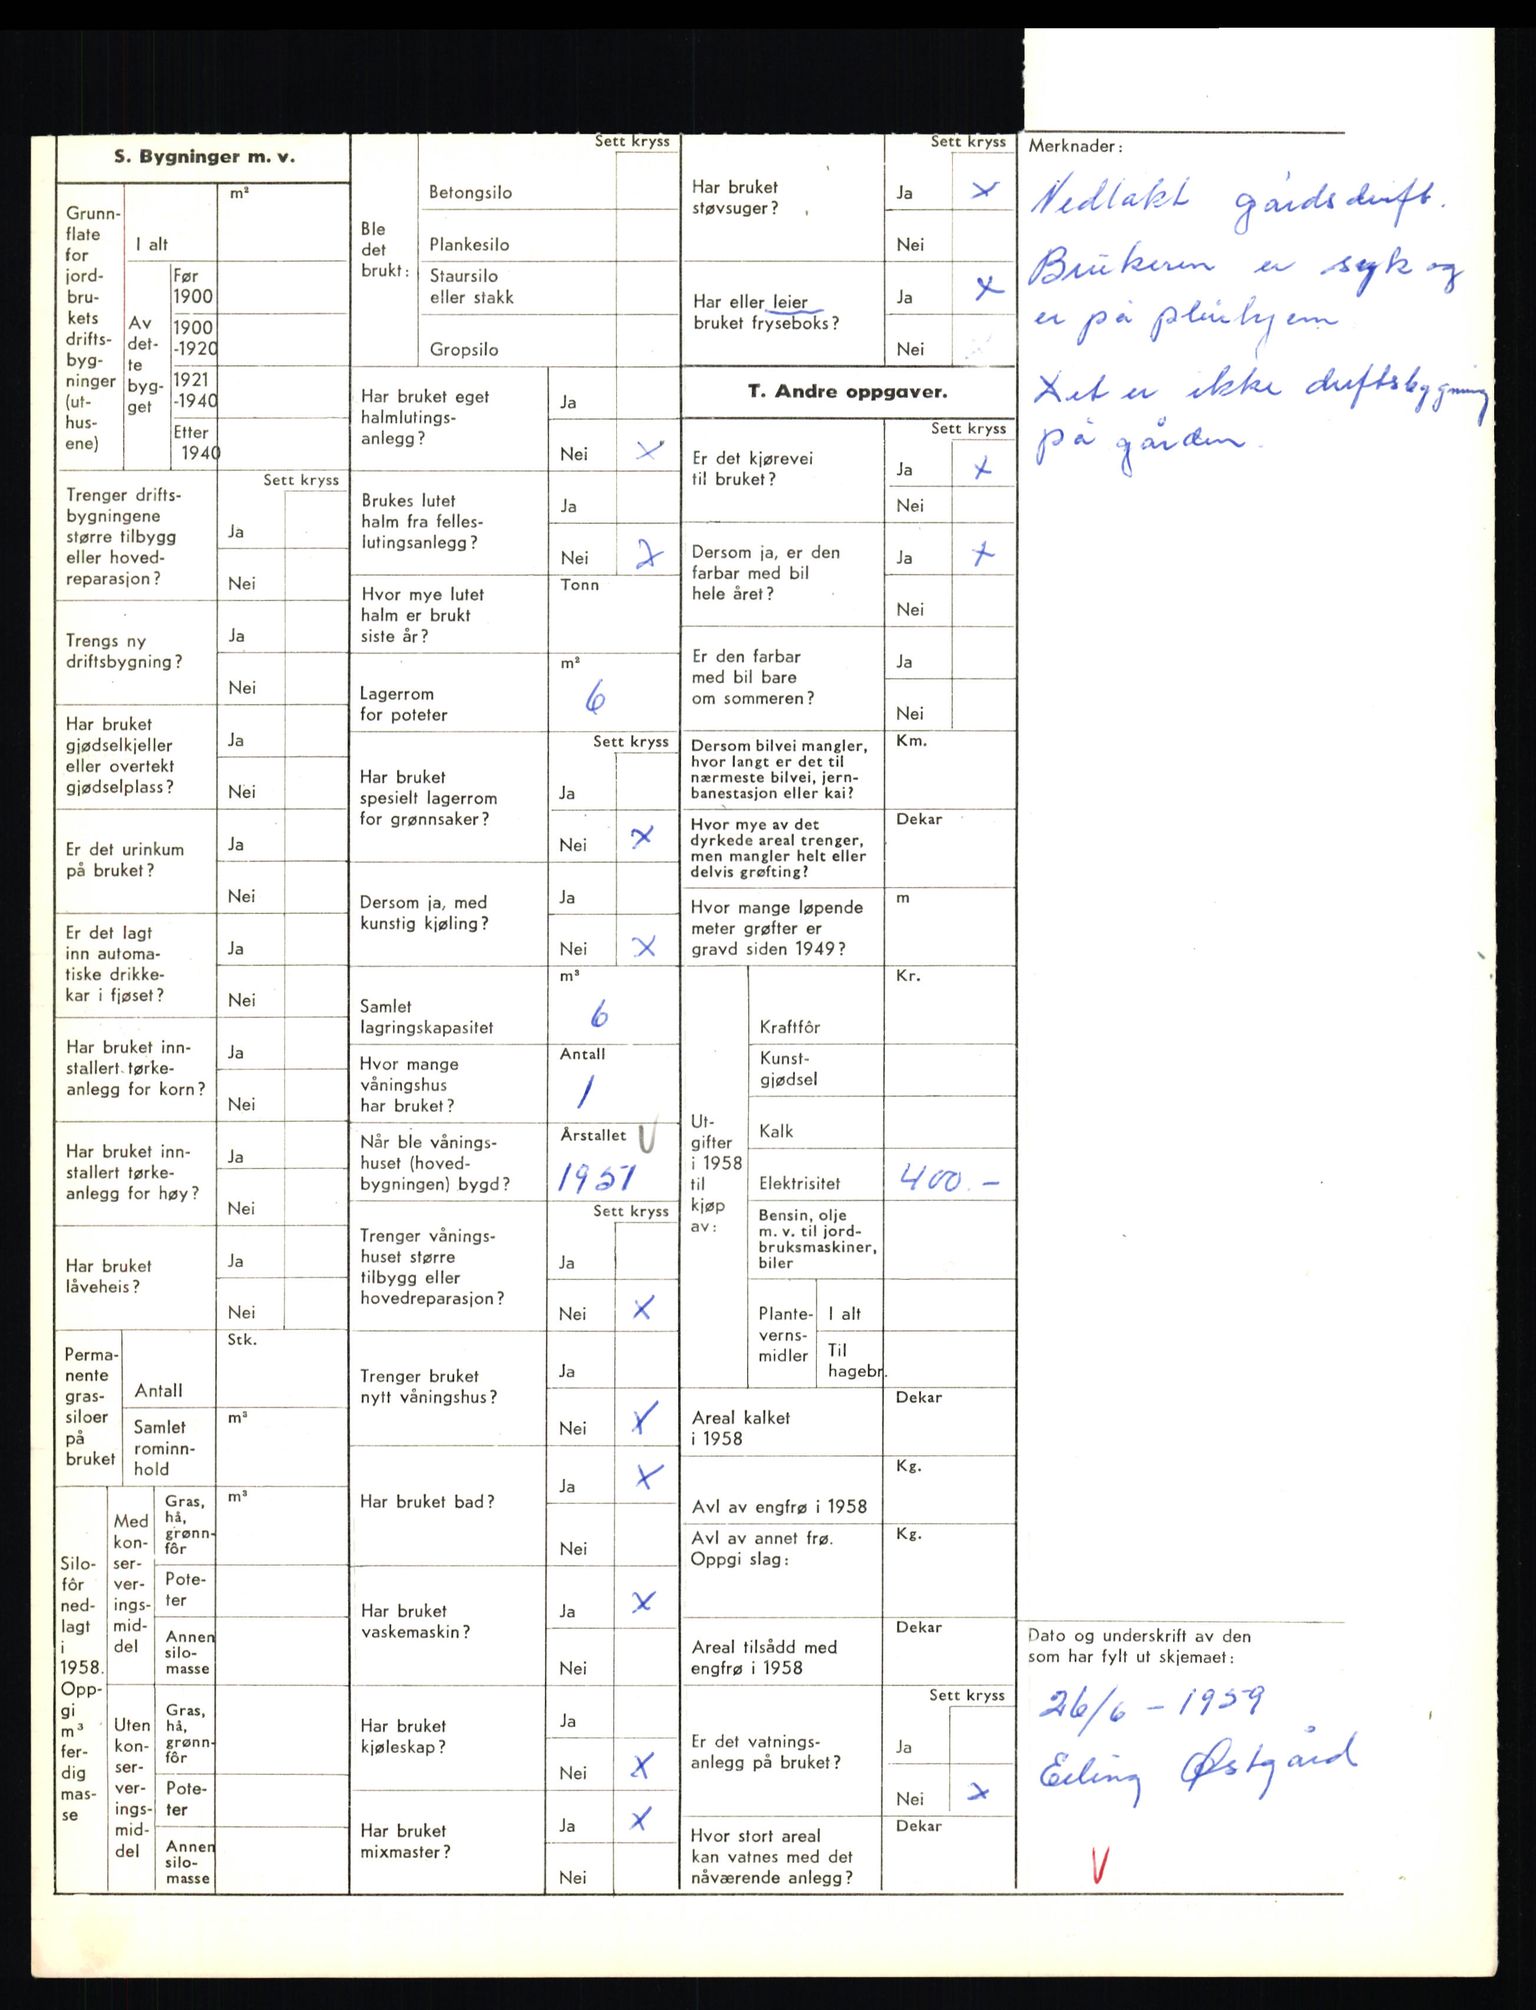 S. Bygninger m. v.
Grunn-
flate
for
jord-
bru-
kets
drifts-
byg-
ninger
(ut-
hus-
ene)
I alt
m²
Av
det-
te
byg-
get
Før
1900
1900
-1920
1921
-1940
Etter
1940
Sett kryss
Trenger drifts-
bygningene
større tilbygg
eller hoved-
reparasjon?
Ja
Nei
Trengs ny
driftsbygning?
Ja
Nei
Har bruket
gjødselkjeller
eller overtekt
gjødselplass?
Ja
Nei
Er det urinkum
på bruket?
Ja
Nei
Er det lagt
inn automa-
tiske drikke-
kar i fjøset?
Ja
Nei
Har bruket inn-
stallert tørke-
anlegg for korn?
Ja
Nei
Har bruket inn-
stallert tørke-
anlegg for høy?
Ja
Nei
Har bruket
låveheis?
Ja
Nei
Perma-
nente
gras-
siloer
på
bruket
Antall
Stk.
Samlet
rominn-
hold
m³
Silo-
fôr
ned-
lagt
i
1958.
Opp-
gi
m³
fer-
dig
mas-
se
Med
kon-
ser-
ver-
ings-
mid-
del
Gras,
hå,
grønn-
fôr
m³
Pote-
ter
Annen
silo-
masse
Uten
kon-
ser-
ver-
ings-
mid-
del
Gras,
hå,
grønn-
fôr
Pote-
ter
Annen
silo-
masse
Ble
det
brukt:
Sett kryss
Betongsilo
Plankesilo
Staursilo
eller stakk
Gropsilo
Har bruket eget
halmlutings-
anlegg?
Ja
Nei x
Brukes lutet
halm fra felles-
lutingsanlegg?
Ja
Nei x
Hvor mye lutet
halm er brukt
siste år?
Tonn
Lagerrom
for poteter
m²
6
Sett kryss
Har bruket
spesielt lagerrom
for grønnsaker?
Ja
Nei x
Dersom ja, med
kunstig kjøling?
Ja
Nei x
Samlet
lagringskapasitet
m³
6
Hvor mange
våningshus
har bruket?
Antall
1
Når ble vånings-
huset (hoved-
bygningen) bygd?
Årstallet V
1951
Sett kryss
Trenger vånings-
huset større
tilbygg eller
hovedreparasjon?
Ja
Nei x
Trenger bruket
nytt våningshus?
Ja
Nei x
Har bruket bad?
Ja x
Nei
Har bruket
vaskemaskin?
Ja x
Nei
Har bruket
kjøleskap?
Ja
Nei x
Har bruket
mixmaster?
Ja x
Nei
Sett kryss
Har bruket
støvsuger?
Ja x
Nei
Har eller leier
bruket fryseboks?
Ja x
Nei
T. Andre oppgaver.
Sett kryss
Er det kjørevei
til bruket?
Ja x
Nei
Dersom ja, er den
farbar med bil
hele året?
Ja x
Nei
Er den farbar
med bil bare
om sommeren?
Ja
Nei
Dersom bilvei mangler,
hvor langt er det til
nærmeste bilvei, jern-
banestasjon eller kai?
Km.
Hvor mye av det
dyrkede areal trenger,
men mangler helt eller
delvis grøfting?
Dekar
Hvor mange løpende
meter grøfter er
gravd siden 1949?
m
Ut-
gifter
i 1958
til
kjøp
av:
Kr.
Kraftfôr
Kunst-
gjødsel
Kalk
Elektrisitet 400.-
Bensin, olje
m. v. til jord-
bruksmaskiner,
biler
Plante-
verns-
midler
I alt
Til
hagebr.
Areal kalket
i 1958
Dekar
Avl av engfrø i 1958
Kg.
Avl av annet frø.
Oppgi slag:
Kg.
Areal tilsådd med
engfrø i 1958
Dekar
Sett kryss
Er det vatnings-
anlegg på bruket?
Ja
Nei x
Hvor stort areal
kan vatnes med det
nåværende anlegg?
Dekar
Merknader:
Nedlakt gårdsdrift.
Brukeren er syk og
er på pleiehjem
Det er ikke driftsbygning
på gården.
Dato og underskrift av den
som har fylt ut skjemaet:
26/6 - 1959
Erling Østgård
V